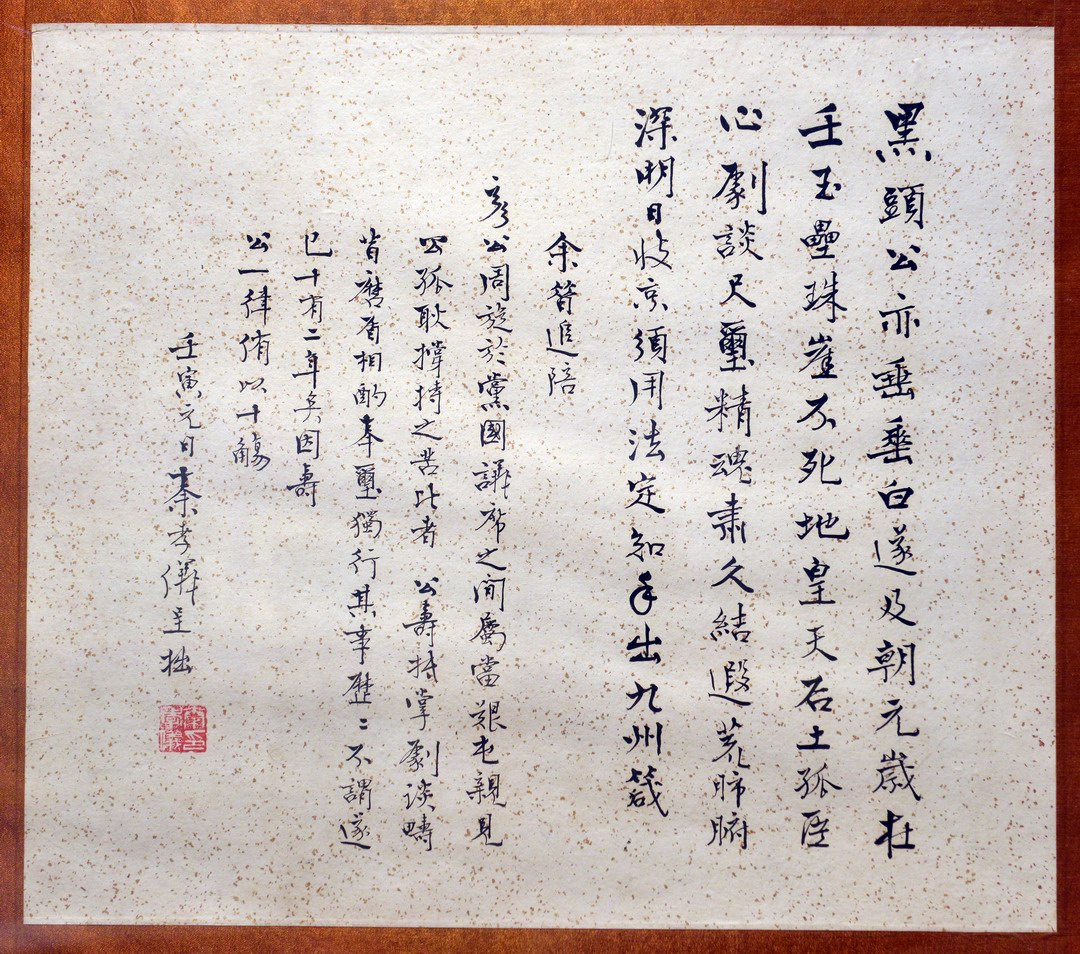 黑頭公亦垂垂白遂及朝元歲在
壬玉壘珠崖不死地皇天后土孤臣
心劇談尺璽精魂肅久結遐荒肺腑
深明日收京須用法定知手出九州箴
余嘗追陪
彥公周旋於黨國議席之間屬當艱屯親見
公孤耿撐持之苦比者 公壽抵掌劇談疇
昔相酌奉璽獨行其事歷々不謂遂
已十有二年矣因壽
公一律侑以十觴
壬寅元日秦孝儀呈拙